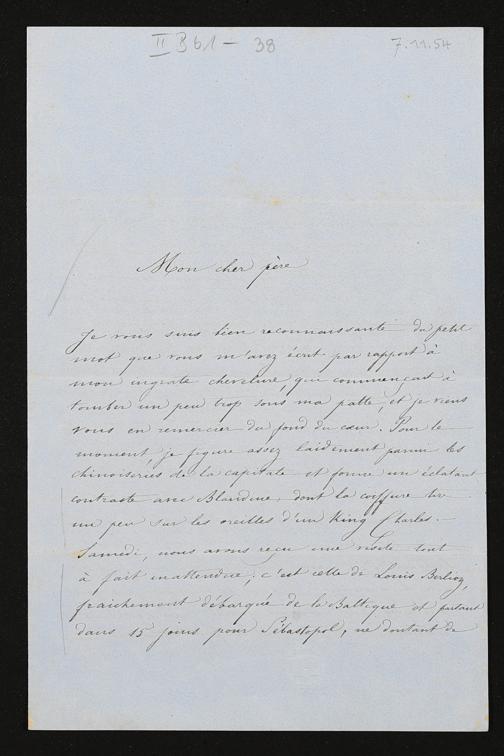 II B b 1 - 38
7.11.54
Mon cher père
Je vous suis bien reconnaissante du petit
mot que vous m'avez écrit par rapport à
mon ingrate chevelure, qui commençait à
tomber un peu trop sous ma patte, et je viens
vous en remercier du fond du cœur. Pour le
moment, je figure assez laidement parmi les
chinoiseries de la capitale et forme un éclatant
contraste avec Blandine, dont la coiffure tire
un peu sur les oreilles d'un King Charles. -
Samedi, nous avons reçu une visite tout
à fait inattendue, c'est celle de Louis Berlioz,
fraîchement débarqué de la Baltique et partant
dans 15 jours pour Sébastopol, ne doutant de